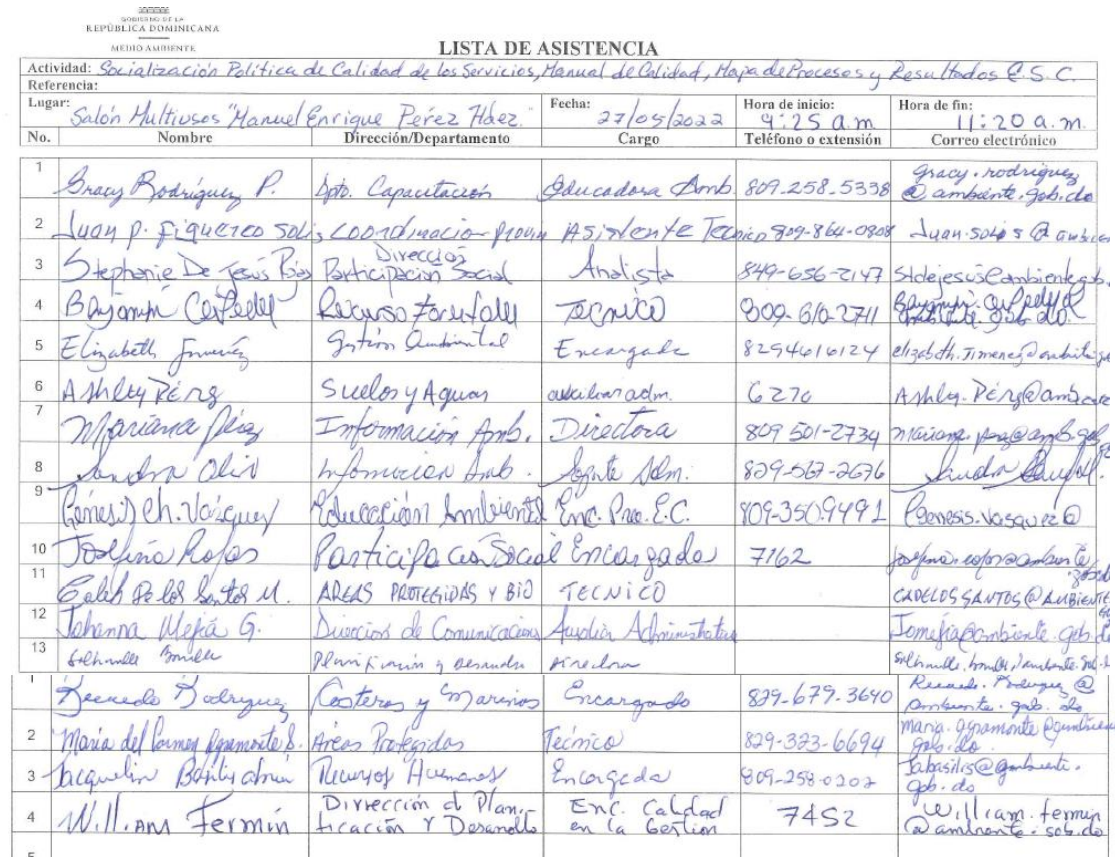 GOBIERNO DE LA
REPÚBLICA DOMINICANA
MEDIO AMBIENTE
LISTA DE ASISTENCIA
Actividad: Socialización Política de Calidad de los Servicios, Manual de Calidad, Mapa de Procesos y Resultados E.S.C.
Referencia:
Lugar: Salón Multiusos "Manuel Enrique Pérez Hdez. Fecha: 27/05/2022 Hora de inicio: 9:25 a.m. Hora de fin: 11:20 a.m.
No. Nombre Dirección/Departamento Cargo Teléfono o extensión Correo electrónico
1 Gracy Rodríguez P. Dpto. Capacitación Educadora Amb. 809-258-5338 gracy.rodriguez
@ambiente.gob.do
2 Juan P. Figuereo Solis Coordinacion Asistente Tecnico 809-864-0808
3 Stephanie De Jesús Dirección
Participación Social Analista 849-656-2147 stdejesus@ambiente.gob.
4 Técnico 809-610-2711
5 Elizabeth Gestión Ambiental Encargada 8294616124
6 Ashley Pérez Suelos y Aguas auxiliar adm. 6270
7 Mariana Pérez Información Amb. Directora 809 501-2734
8 Sandra Informacion Amb. Adm. 829-567-2676
9 Génesis Ch. Vásquez Educación Ambiental Enc. Pro. E.C. 809-350-9491 Genesis.Vasquez@
10 Josefina Rojas Participacion Social Encargada 7162
11 Caleb De los Santos M. AREAS PROTEGIDAS Y BIO TECNICO CADELOSSANTOS@AMBIENTE
12 Johanna Mejía G. Direccion de Comunicaciones Auxiliar Administrativa Jomejia@ambiente.gob.do
13 Planificación y Desarrollo Directora
1 Rodriguez Costeros y Marinos Encargado 829-679-3640
ambiente.gob.do
2 María del Carmen Agramonte S. Áreas Protegidas Técnico 829-323-6694 maria.agramonte@ambiente
gob.do
3 Jacquelin Recursos Humanos Encargada 809-258-0202
gob.do
4 William Fermín Dirrección d Plani-
ficación Y Desarrollo Enc. Calidad
en la Gestion 7452 William.fermin
@ambiente.gob.do
5